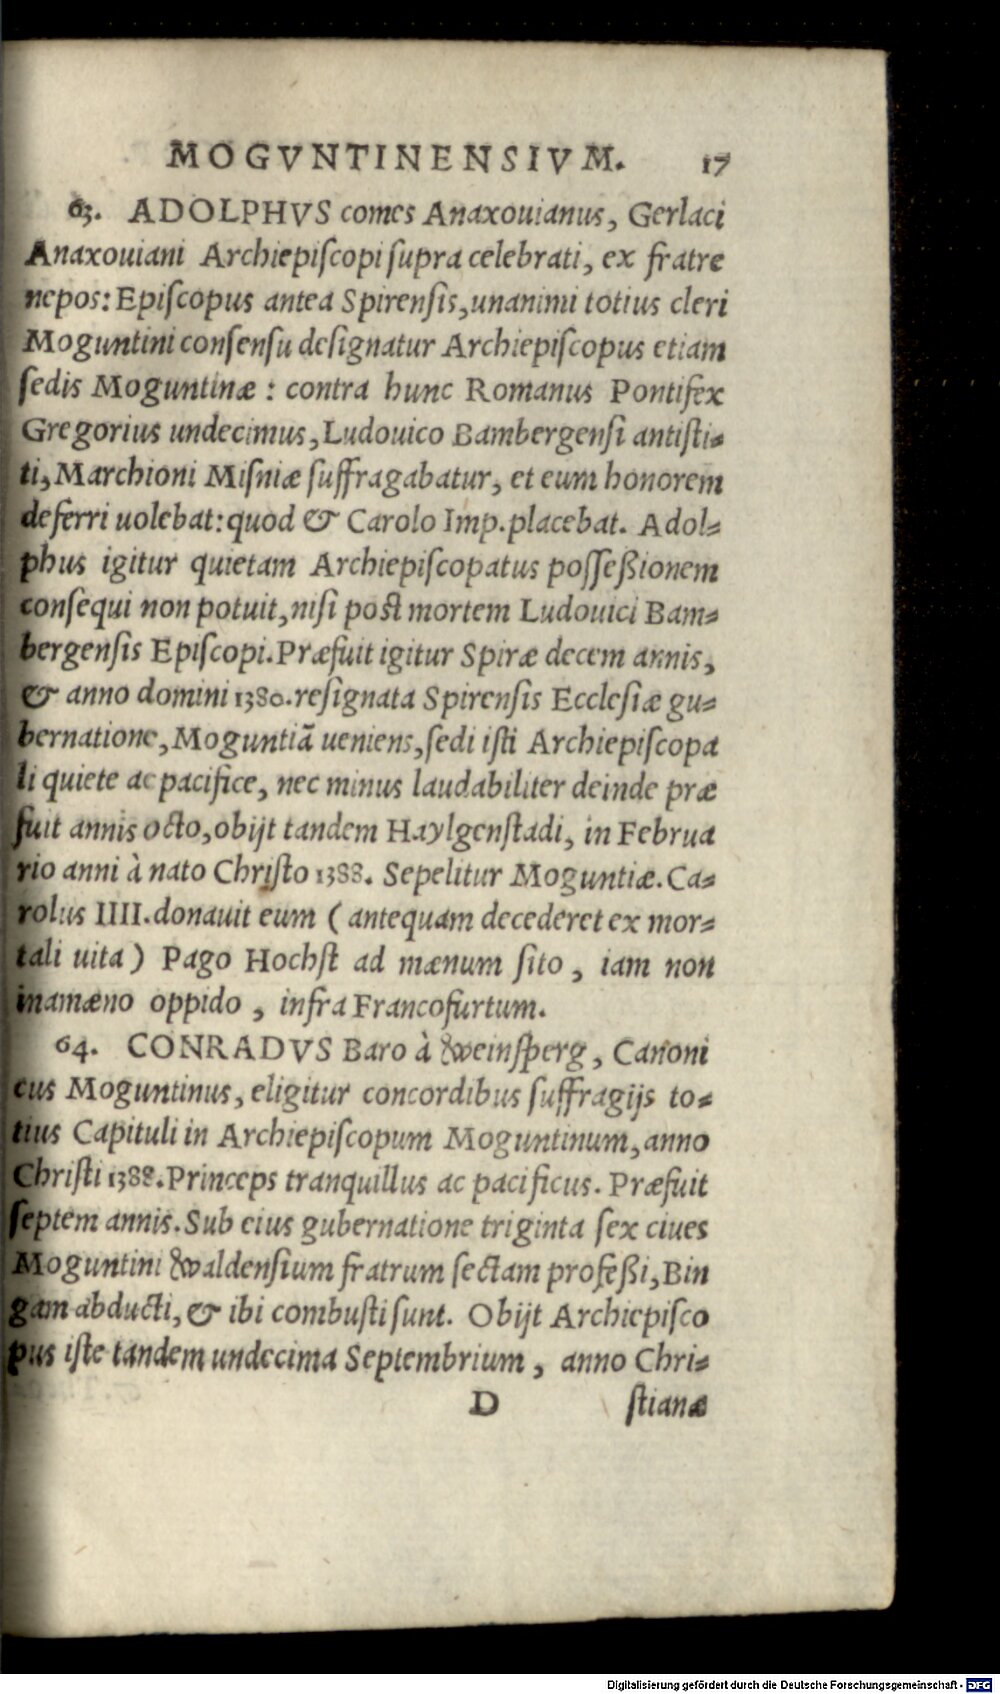 MOGVNTINENSIVM. 17
63. ADOLPHVS comes Anaxouianus, Gerlaci
Anaxouiani Archiepiſcopi ſupra celebrati, ex fratre
nepos: Epiſcopus antea Spirenſis, unanimi totius cleri
Moguntini conſenſu deſignatur Archiepiſcopus etiam
ſedis Moguntinæ : contra hunc Romanus Pontifex
Gregorius undecimus, Ludouico Bambergenſi antiſti-
ti, Marchioni Miſniæ ſuffragabatur, et eum honorem
deferri uolebat: quod & Carolo Imp. placebat. Adol-
phus igitur quietam Archiepiſcopatus poſſeßionem
conſequi non potuit, niſi poſt mortem Ludouici Bam-
bergenſis Epiſcopi. Præfuit igitur Spiræ decem annis,
& anno domini 1380. reſignata Spirenſis Eccleſiæ gu-
bernatione, Moguntiã ueniens, ſedi iſti Archiepiſcopa
li quiete ac pacifice, nec minus laudabiliter deinde præ
fuit annis octo, obijt tandem Haylgenſtadi, in Februa
rio anni à nato Chriſto 1388. Sepelitur Moguntiæ. Ca-
rolus IIII. donauit eum ( antequam decederet ex mor-
tali uita ) Pago Hochſt ad mænum ſito, iam non
inamæno oppido, infra Francofurtum.
64. CONRADVS Baro à Weinſperg, Canoni
cus Moguntinus, eligitur concordibus ſuffragijs to-
tius Capituli in Archiepiſcopum Moguntinum, anno
Chriſti 1388. Princeps tranquillus ac pacificus. Præfuit
ſeptem annis. Sub eius gubernatione triginta ſex ciues
Moguntini Waldenſium fratrum ſectam profeßi, Bin
gam abducti, & ibi combuſti ſunt. Obijt Archiepiſco
pus iſte tandem undecima Septembrium, anno Chri-
D ſtianæ
Digitalisierung gefördert durch die Deutsche Forschungsgemeinschaft - DFG